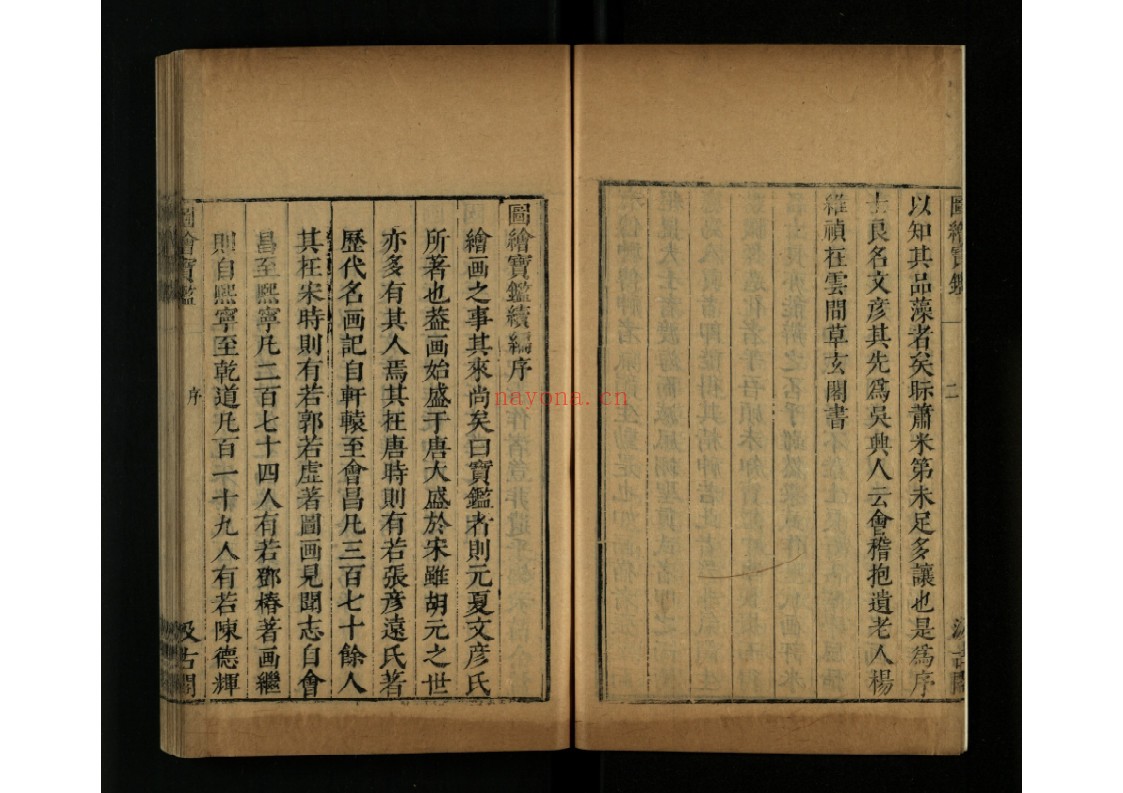 圖繪寶鑑
二
汲古閣
以知其品藻者矣眎蕭米第未足多讓也是爲序
士良名文彥其先爲吳興人云會稽抱遺老人楊
維禎在雲間草玄閣書
圖繪寶鑑續編序
繪画之事其來尚矣曰寶鑑者則元夏文彥氏
所著也葢画始盛于唐大盛於宋雖胡元之世
亦多有其人焉其在唐時則有若張彦遠氏著
歷代名画記自軒轅至會昌凡三百七十餘人
其在宋時則有若郭若虛著圖画見聞志自會
昌至熙寧凡二百七十四人有若鄧椿著画繼
則自熙寧至乾道凡百一十九人有若陳德輝
圖繪寶鑑
序
汲古閣
nayona.cn